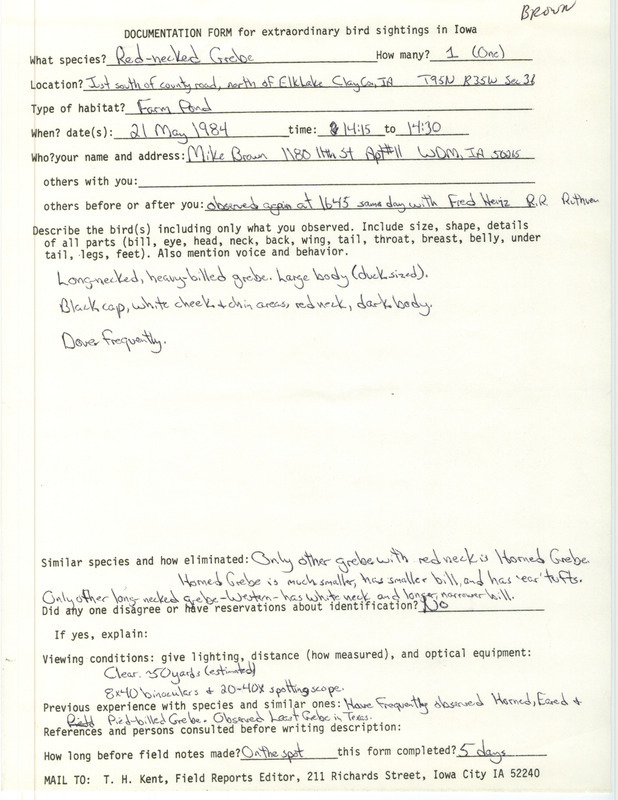 BROWN
DOCUMENTATION FORM for extraordinary bird sightings in Iowa
What species? Red-necked Grebe How many? 1 (One)
Location? Just south of county road, north of Elk Lake Clay Co, IA T95N R35W Sec 31
Type of habitat? Farm Pond
When? date(s): 21 May 1984 time: 14:15 to 14:30
Who? your name and address: Mike Brown 1180 11th St Apt #11 WDM, IA 50265
others with you:
others before or after you: observed again at 1645 same day with Fred Heinz R.R. Ruthven
Describe the bird(s) including only what you observed. Include size, shape, details
of all parts (bill, eye, head, neck, back, wing, tail, throat, breast, belly, under
tail, legs, feet). Also mention voice and behavior.
Long-necked, heavy-billed grebe. Large body (duck sized).
Black cap, white cheek & chin areas, red neck, dark body.
Dover frequently.
Similar species and how eliminated: Only other grebe with red neck is Horned Grebe.
Horned Grebe is much smaller, has smaller bill, and has 'ear' tufts.
Only other long-necked grebe-Western-has white neck and longer, narrower bill.
Did any one disagree or have reservations about identification? No
If yes, explain:
Viewing conditions: give lighting, distance (how measured), and optical equipment:
Clear. ~50 yards (estimated)
8x40 binoculars & 20-40x spotting scope.
Previous experience with species and similar ones: Have frequently observed Horned, Eared &
Pied-billed Grebe. Observed Least Grebe in Texas.
References and persons consulted before writing description:
How long before field notes made? On the spot this form completed? 5 days
MAIL TO: T. H. Kent, Field Reports Editor, 211 Richards Street, Iowa City IA 52240